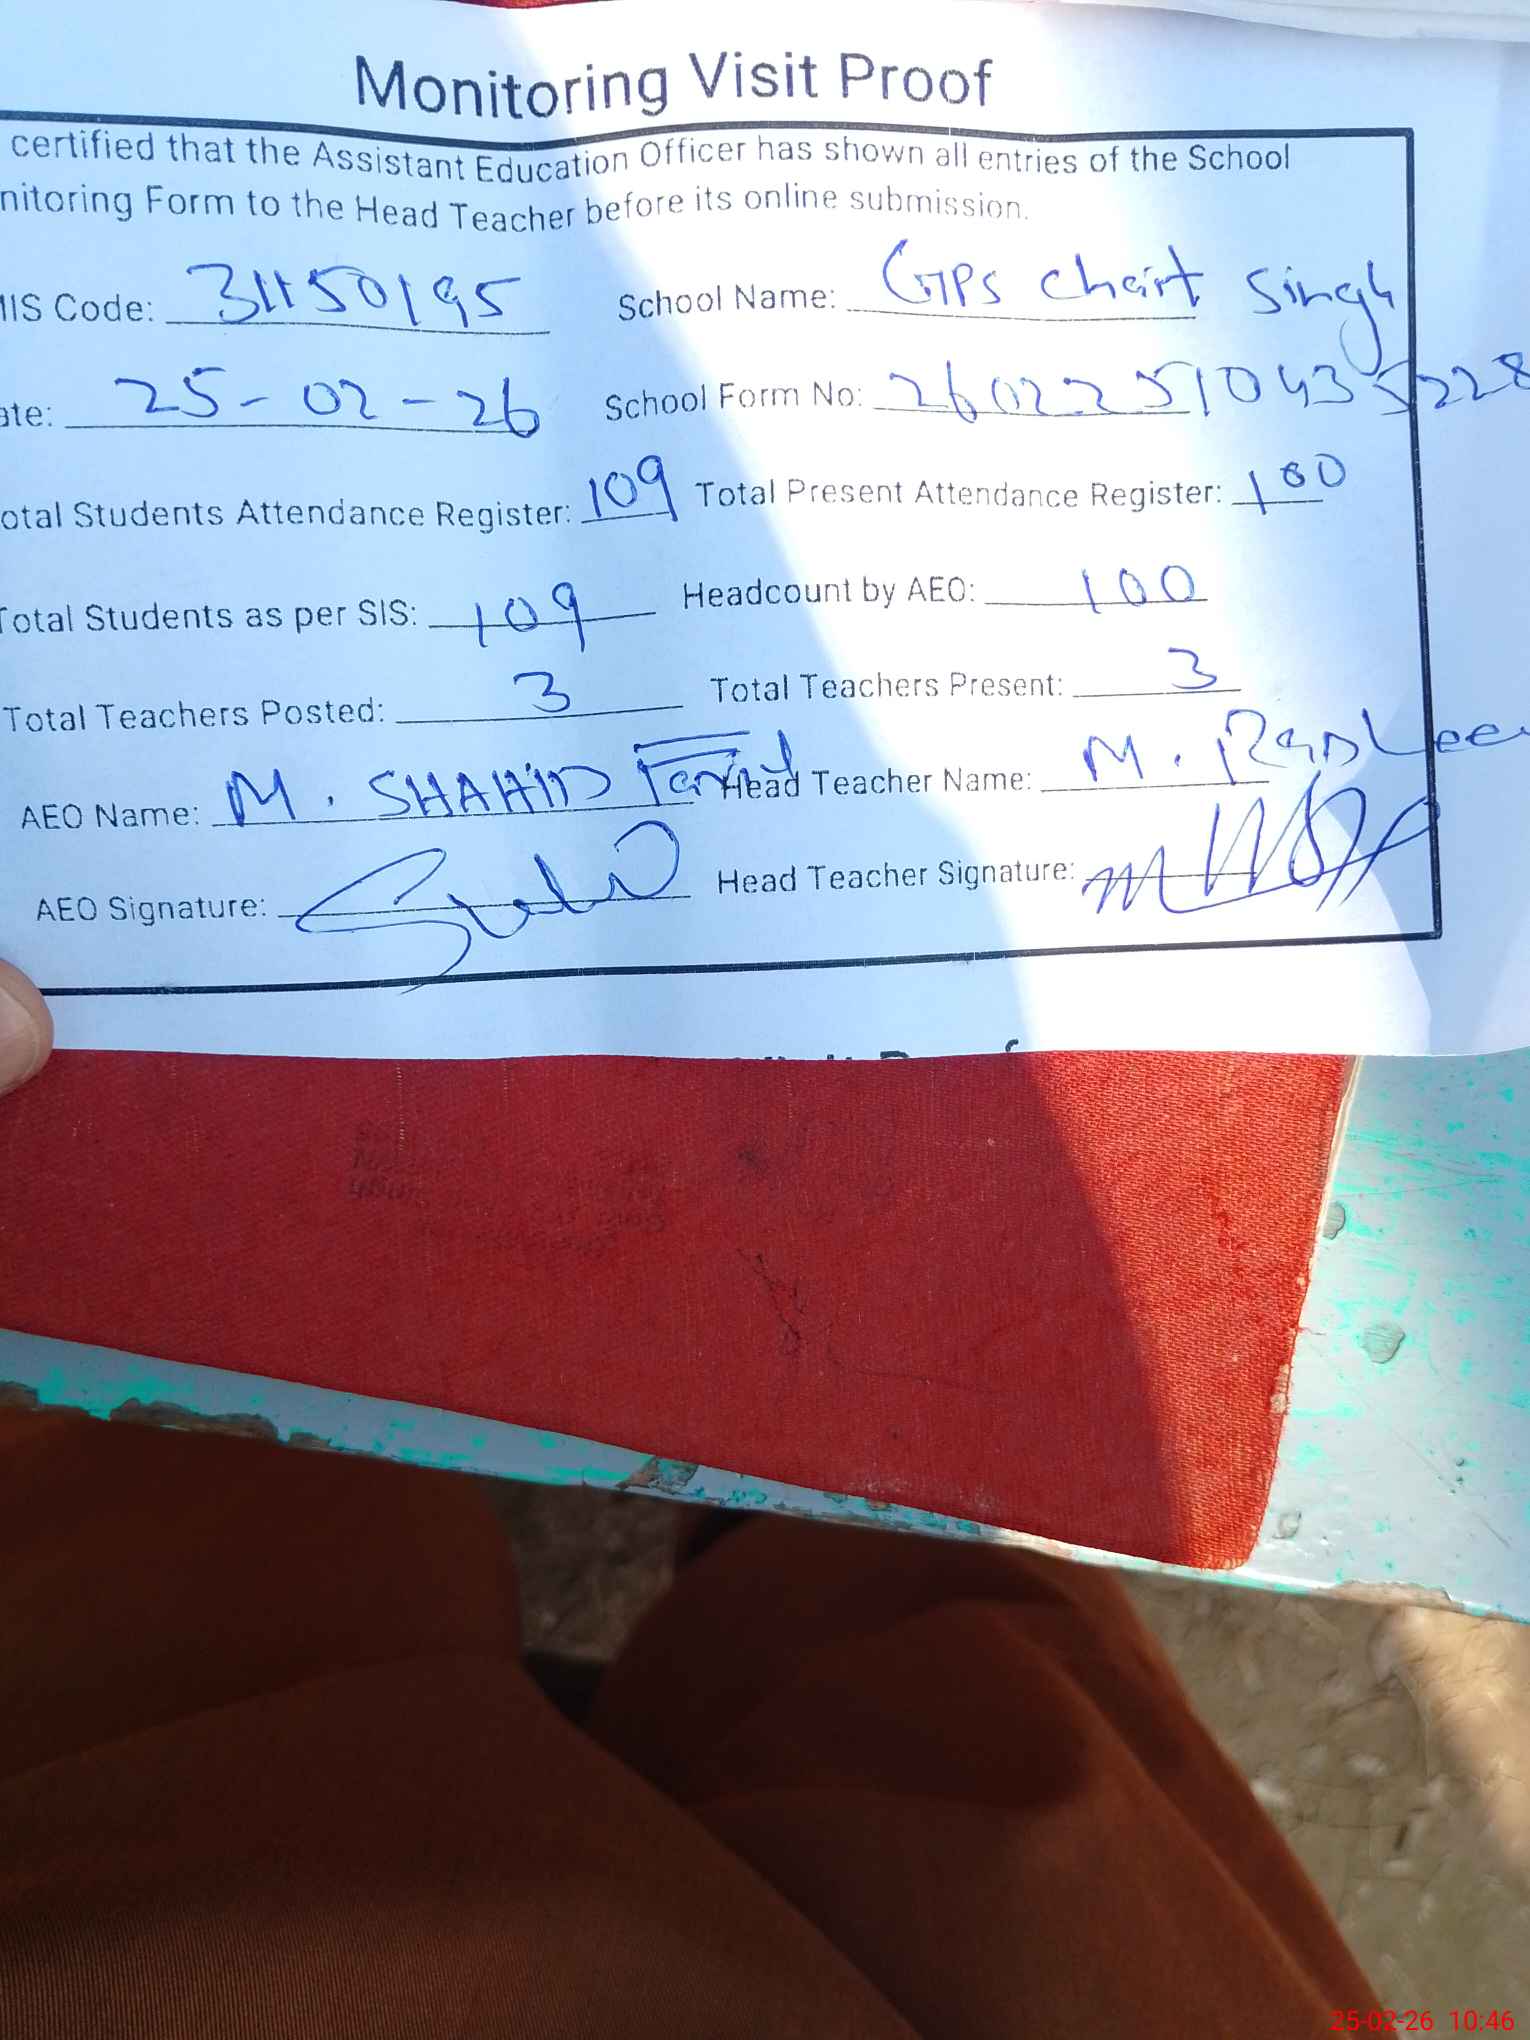 Monitoring Visit Proof
certified that the Assistant Education Officer has shown all entries of the School
nitoring Form to the Head Teacher before its online submission.
MIS Code: 31150195 School Name: GPS Chait Singh
ate: 25-02-26 School Form No: 26022510435228
otal Students Attendance Register: 109 Total Present Attendance Register: 100
Total Students as per SIS: 109 Headcount by AEO: 100
Total Teachers Posted: 3 Total Teachers Present: 3
AEO Name: M. SHAHID Farid Head Teacher Name: M. Rasheed
AEO Signature: Head Teacher Signature:
25-02-26 10:46